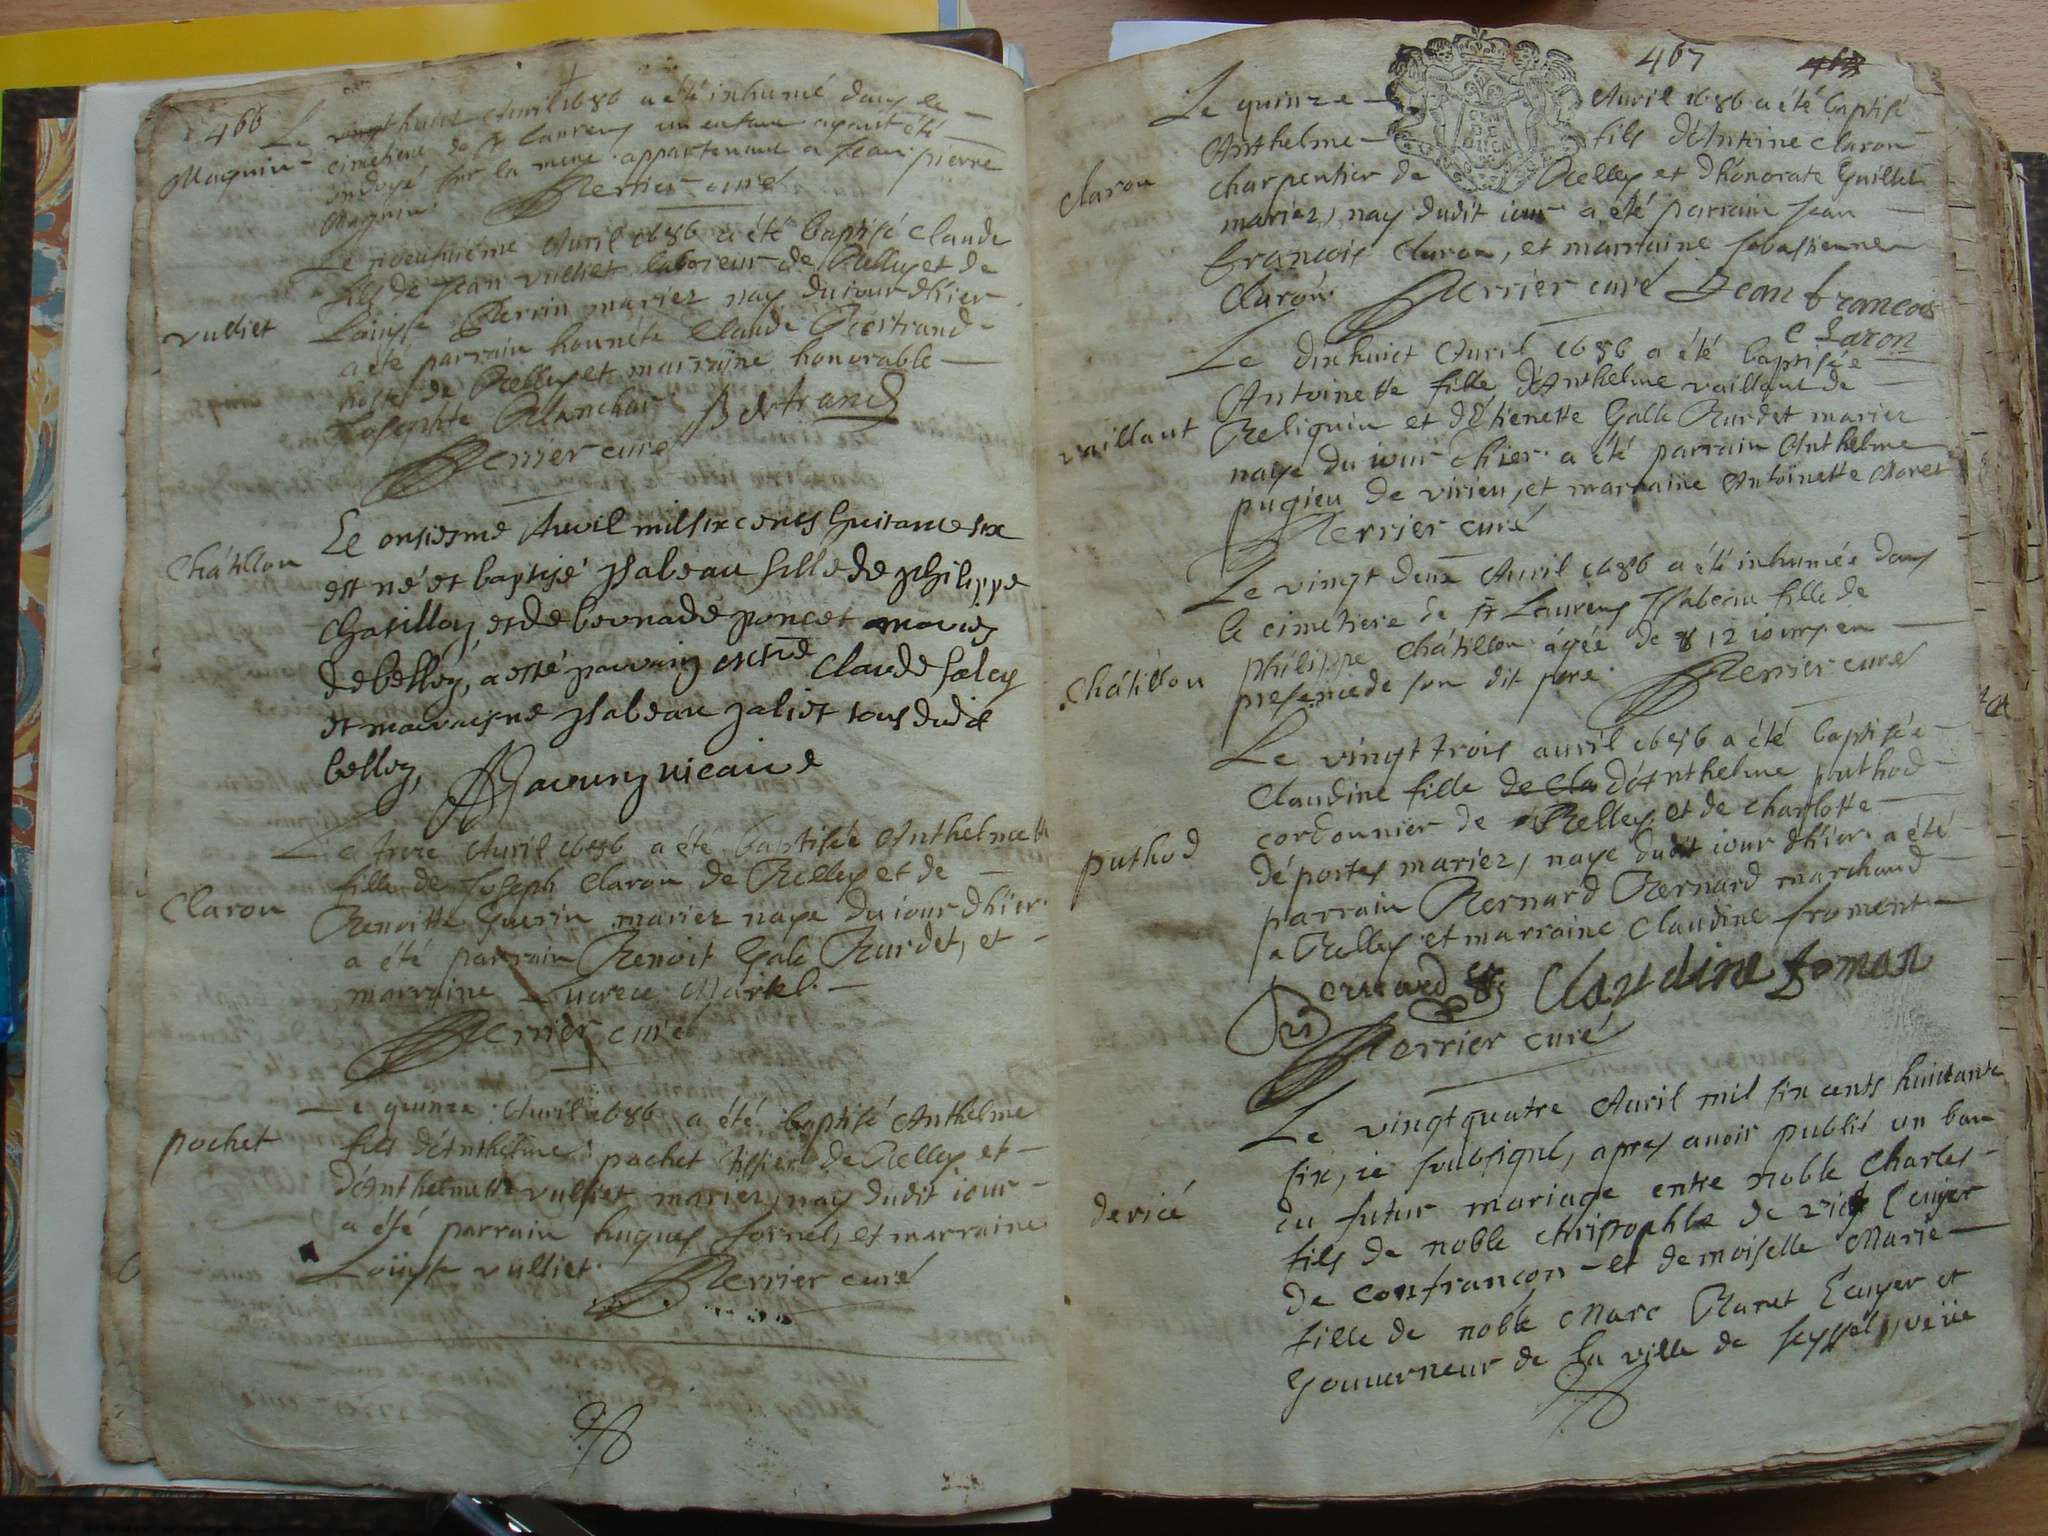 466
Le vingt huict Auril 1686 a été inhumé dans le
Maquin
cimetiere de St Laurens un enfant ayant été
ondoyé sur la mere appartenant a Jean pierre
Maquin. Perrier curé
Le neuuiéme Auril 1686 a été baptisé Claude
fils de Jean vulliet laboreur de Belley et de
vulliet
Loüyse Perrin mariez nay du iour d'hier
a été parrain honnéte Claude Bertrand
hoste de Belley et marraine honorable
Josephte Blanchar Bertrand
Perrier curé
Chátillon
Le onsiesme Auvil mil six cents huitante six
est né et baptisé ysabeau fille de philippe
Chatillon, et de bernade poncet mariés
de belley, a esté parrain Claude
et marraisne ysabeau jaliet tous dudit
belley, vicaire
Le treize Auril 1686 a été baptisée Anthelmette
fille de Joseph Claron de Belley et de
Claron
Benoitte Guerin mariez naye du iour d'hier
a été parrain Benoit Galé Burdet, et
marraine Lucrece Martel.
Perrier curé
Le quinze Auril 1686 a été baptisé Anthelme
pochet
fils d'Anthelme pochet tissier de Belley et
d'Anthelmette vulliet mariez, nay dudit iour
a été parrain hugues fornel, et marraine
Loüyse vulliet. Perrier curé
467
Le quinze Auril 1686 a été baptisé
Anthelme fils d'Antoine Claron
Claron
charpentier de Belley et d'honorate Guillet
mariez, nay dudit iour a été parrain Jean
françois Claron, et marraine sebastienne
Claron. Perrier curé Jean francois
Claron
Le dixhuict Auril 1686 a été baptisée
Antoinette fille d'Anthelme vaillant de
vaillant
Beliguin et d'Etienette Galle Burdet mariez
naye du iour d'hier a été parrain Anthelme
pugieu de virieu, et marraine Antoinette Moret
Perrier curé
Le vingt deux Auril 1686 a été inhumée dans
le cimetiere de St Laurens ysabeau fille de
Chátillon
philippe Chátillon ágée de 12 iours en
presence de son dit pere. Perrier curé
Le vingt trois auril 1686 a été baptisée
Claudine fille de Cla d'Anthelme puthod
cordonnier de Belley, et de charlotte
puthod
déportes mariez, naye dudit iour d'hier a été
parrain Bernard Bernard marchand
a Belley et marraine Claudine froment
Bernard Claudine froman
Perrier curé
Le vingtquatre Auril mil six cents huictante
six, ie soubsigné, apres auoir publié un ban
du futur mariage entre noble Charles
dericé
fils de noble Christophle de ricé Ecuyer
de confrançon et demoiselle Marie
fille de noble Marc Ecuyer et
gouuerneur de la ville de seyssel, veüe